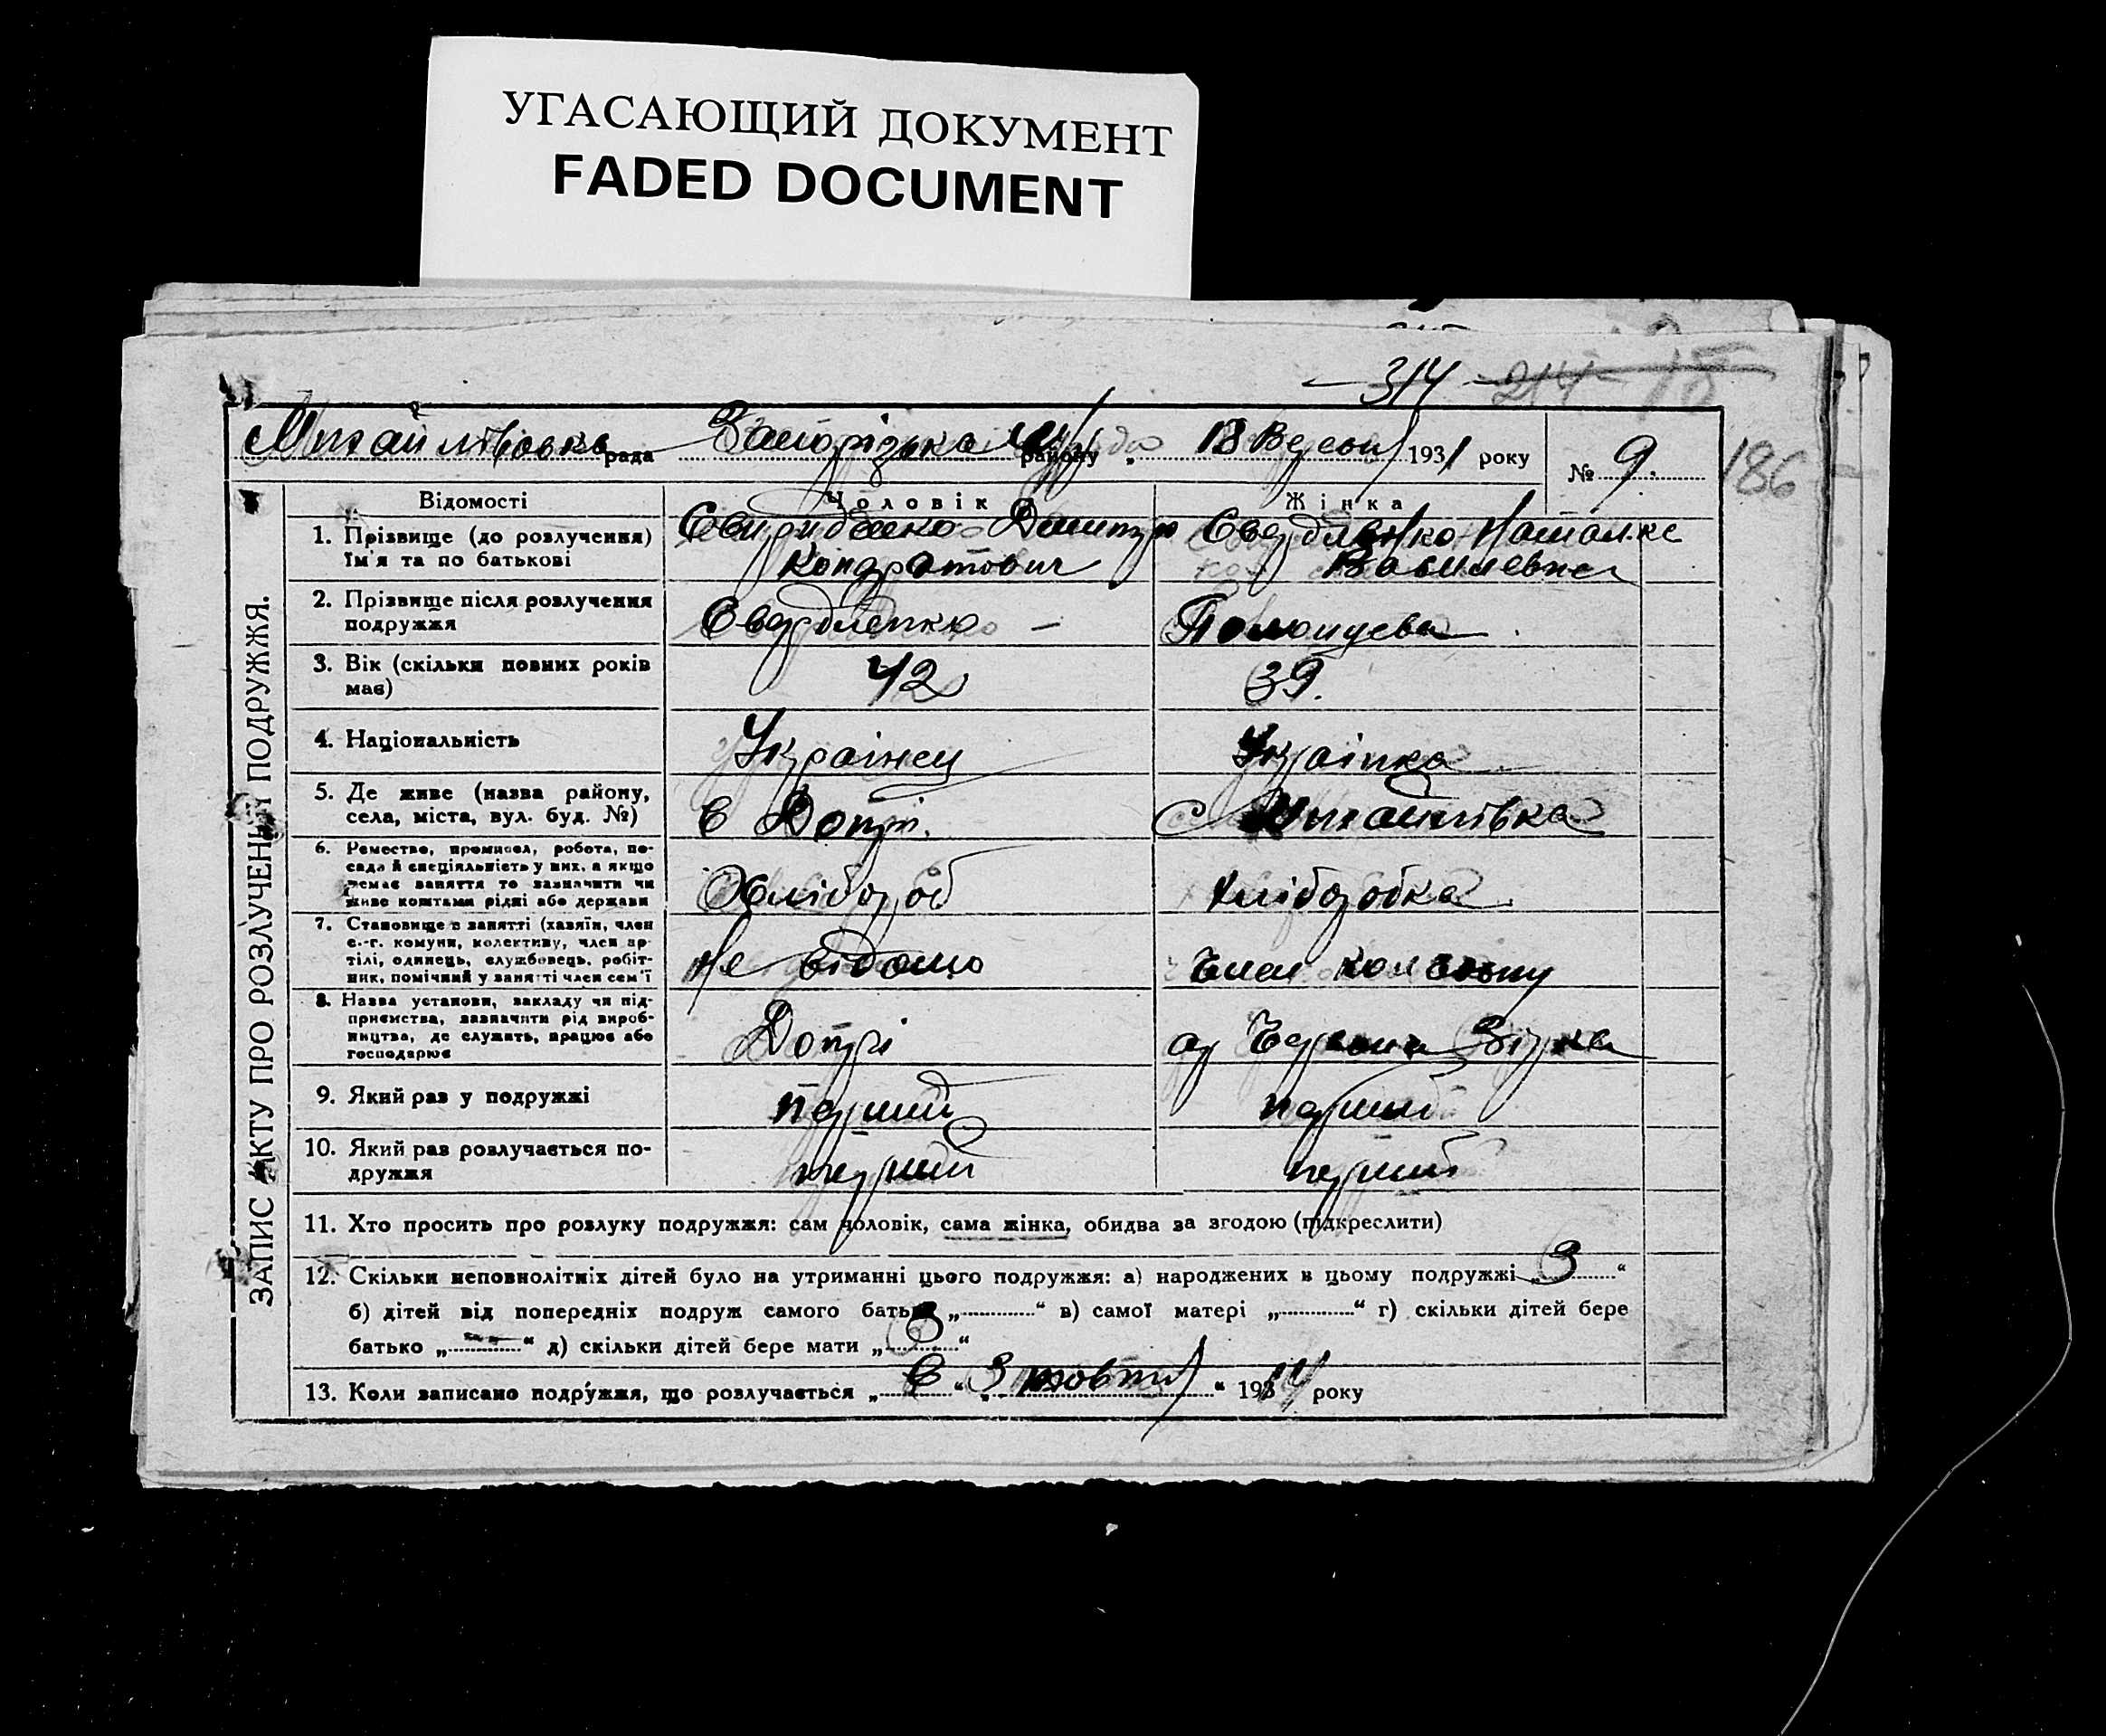 УГАСАЮЩИЙ ДОКУМЕНТ
FADED DOCUMENT
314 214 15
Михайлівська рада Запорізька району „ 18 Вересня 1931 року № 9.
186
ЗАПИС АКТУ ПРО РОЗЛУЧЕННЯ ПОДРУЖЖЯ.
Відомості Чоловік Жінка
1. Прізвище (до розлучення) Дмитро Наталка
Ім'я та по батькові Кондратович Василевна
2. Прізвище після розлучення
подружжя Свердленко —
3. Вік (скільки повних років 42 39.
має)
4. Національність Українец Українка
5. Де живе (назва району,
села, міста, вул. буд. №) в Допрі. с Михайлівка
6. Ремество, промисел, робота, по-
сада й спеціяльність у них, а якщо
немає заняття то зазначити чи Хлібороб хлібробка
живе коштами рідні або держави
7. Становище в занятті (хазяїн, член
с.-г. комуни, колективу, член ар-
тілі, одинець, службовець, робіт- Не відомо Член колгоспу
ник, помічний у занятті член сем'ї
8. Назва установи, закладу чи під-
приємства, зазначити рід вироб-
ництва, де служить, працює або Допрі ар Червона Зірка
господарює
9. Який раз у подружжі перший перший
10. Який раз розлучається по-
дружжя перший перший
11. Хто просить про розлуку подружжя: сам чоловік, сама жінка, обидва за згодою (підкреслити)
12. Скільки неповнолітніх дітей було на утриманні цього подружжя: а) народжених в цьому подружжі „ 3 “
б) дітей від попередніх подруж самого батька „ “ в) самої матері „ “ г) скільки дітей бере
батько „ — “ д) скільки дітей бере мати „ 3 “
13. Коли записано подружжя, що розлучається „ “ „ 3 жовтня “ року